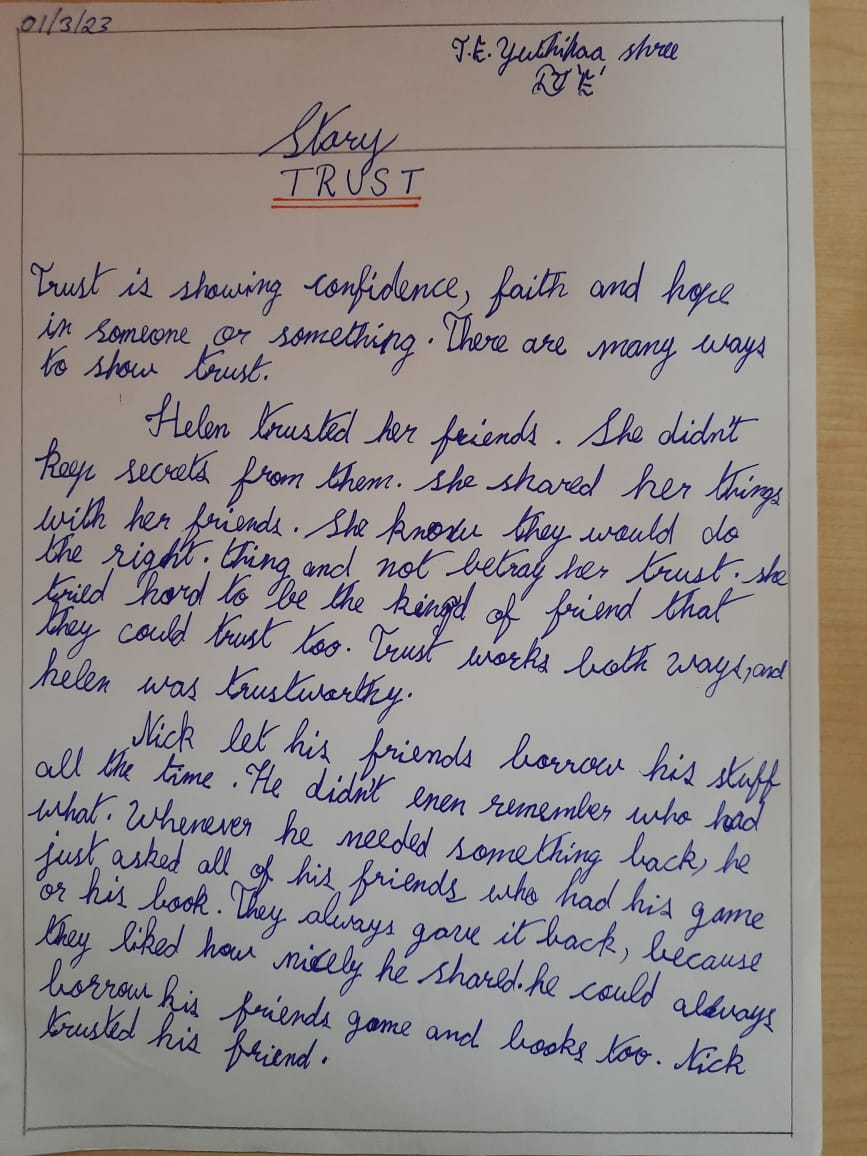 01/3/23
T.E. Yuthikaa shree
Story
TRUST
Trust is showing confidence, faith and hope
in someone or something. There are many ways
to show trust.
Helen trusted her friends. She didn't
keep secrets from them. she shared her things
with her friends. She know they would do
the right. thing and not betray her trust. she
tried hard to be the kind of friend that
they could trust too. Trust works both ways, and
helen was trustworthy.
Nick let his friends borrow his stuff
all the time. He didn't even remember who had
what. Whenever he needed something back, he
just asked all of his friends who had his game
or his book. They always gave it back, because
they liked how nicely he shared. he could always
borrow his friends game and books too. Nick
trusted his friend.